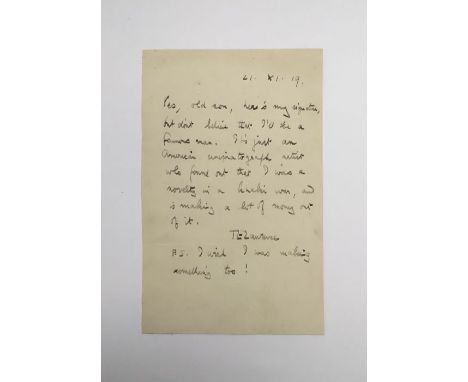 21. XI. 19.
Yes, old son, here is my signature,
but don't believe that I'd be a
famous man. It is just an
American cinematograph artist
who found out that I was a
novelty in a khaki war, and
is making a lot of money out
of it.
TELawrence
P.S. I wish I was making
something too!